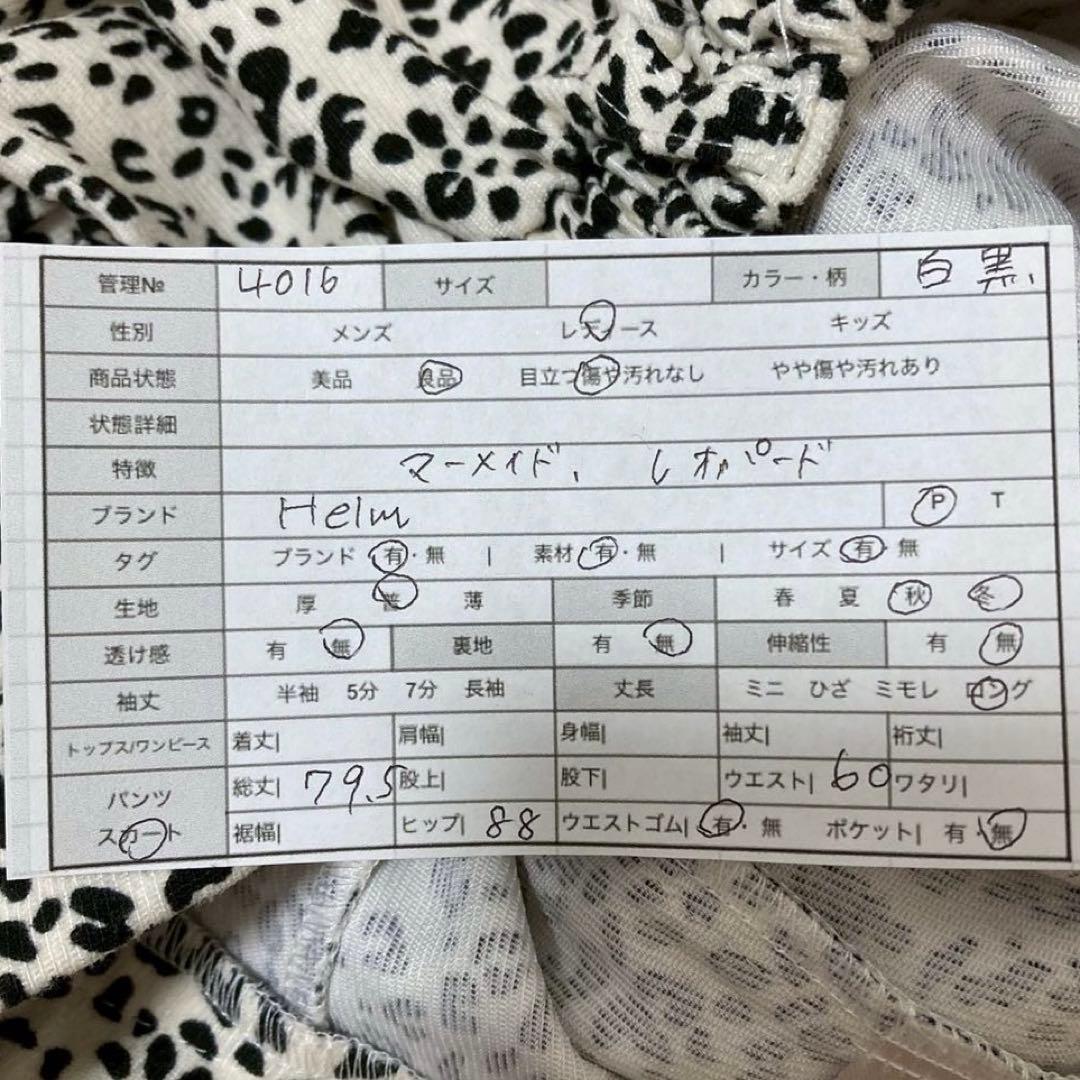 管理№ 4016 サイズ カラー・柄 白黒、
性別 メンズ レディース キッズ
商品状態 美品 良品 目立つ傷や汚れなし やや傷や汚れあり
状態詳細
特徴 マーメイド、レオパード
ブランド Helm P T
タグ ブランド 有・無 | 素材 有・無 | サイズ 有・無
生地 厚 普 薄 季節 春 夏 秋 冬
透け感 有 無 裏地 有 無 伸縮性 有 無
袖丈 半袖 5分 7分 長袖 丈長 ミニ ひざ ミモレ ロング
トップス/ワンピース 着丈| 肩幅| 身幅| 袖丈| 裄丈|
パンツ 総丈| 79.5 股上| 股下| ウエスト| 60 ワタリ|
スカート 裾幅| ヒップ| 88 ウエストゴム| 有・無 ポケット| 有・無